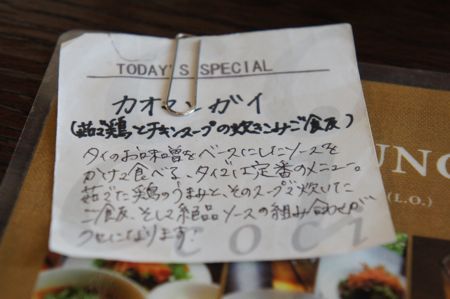 TODAY'S SPECIAL
カオマンガイ
(茹で鶏とチキンスープの炊きこみご飯)
タイのお味噌をベースにしたソースを
かけて食べる、タイでは定番のメニュー。
茹でた鶏のうまみと、そのスープで炊いた
ご飯、そして絶品ソースの組み合わせが
クセになります!
coci
UNC
(L.O.)